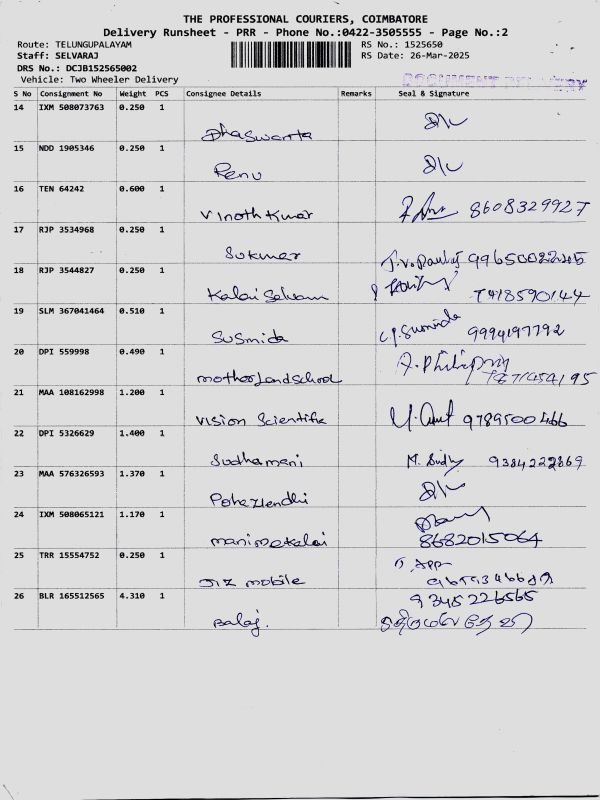 THE PROFESSIONAL COURIERS, COIMBATORE
Delivery Runsheet - PRR - Phone No.:0422-3505555 - Page No.:2
Route: TELUNGUPALAYAM RS No.: 1525650
Staff: SELVARAJ RS Date: 26-Mar-2025
DRS No.: DCJB152565002
Vehicle: Two Wheeler Delivery DOCUMENT DELIVERY
S No Consignment No Weight PCS Consignee Details Remarks Seal & Signature
14 IXM 508073763 0.250 1
Dhaswanta D/L
15 NDD 1905346 0.250 1
Renu D/L
16 TEN 64242 0.600 1
Vinoth Kumar 8608329927
17 RJP 3534968 0.250 1
Sukumar
18 RJP 3544827 0.250 1
Kalai Selvam 7418590144
19 SLM 367041464 0.510 1
Susmida 9994197792
20 DPI 559998 0.490 1
motherlandschool
21 MAA 108162998 1.200 1
Vision Scientific 9789500466
22 DPI 5326629 1.400 1
Sudhamani 9384222869
23 MAA 576326593 1.370 1
D/L
24 IXM 508065121 1.170 1
manimekalai 8682015064
25 TRR 15554752 0.250 1
mobile
26 BLR 165512565 4.310 1 9345226565
Balaj.